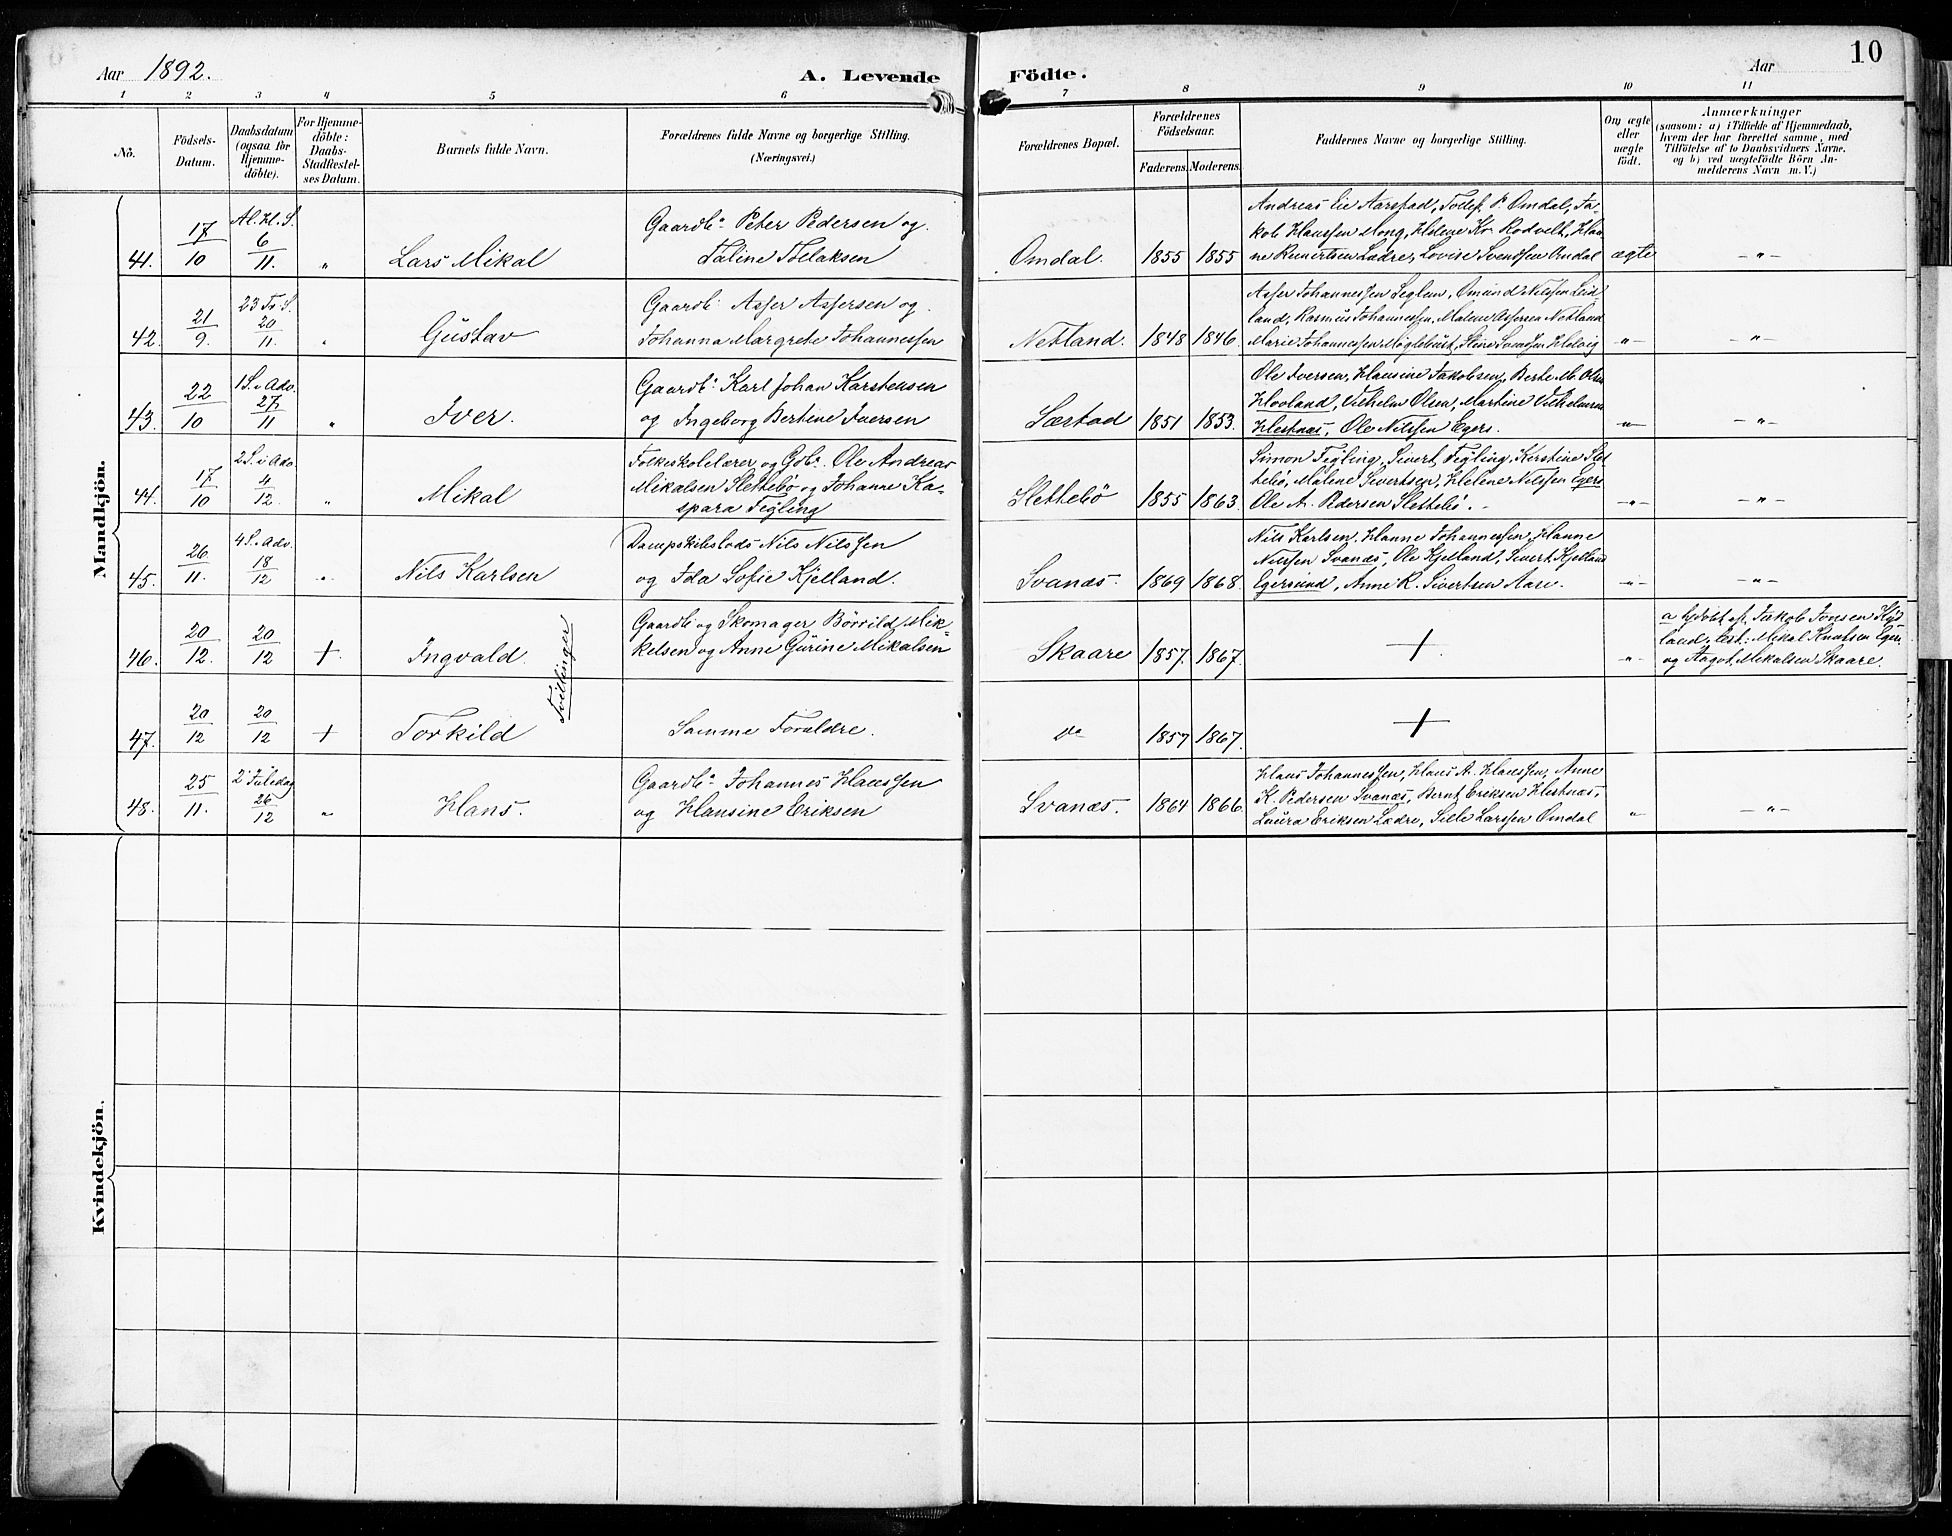 Aar 1892.
A. Levende Födte.
Aar
10
1 2 3 4 5 6 7 8 9 10 11
No.
Födsels-
Datum.
Daabsdatum
(ogsaa for
Hjemme-
döbte).
For Hjemme-
döbte:
Daabs-
Stadfæstel-
ses Datum.
Barnets fulde Navn.
Forældrenes fulde Navne og borgerlige Stilling.
(Næringsvei.)
Forældrenes Bopæl.
Forældrenes
Födselsaar.
Faderens. Moderens.
Faddernes Navne og borgerlige Stilling.
Om ægte
eller
uægte
födt.
Anmærkninger
(saasom: a) i Tilfælde af Hjemmedaab,
hvem der har forrettet samme, med
Tilföielse af to Daabsvidners Navne,
og b) ved uægtefödte Börn An-
melderens Navn m. V.)
Mandkjön.
41. 17/10 Al. H. S. 6/11. " Lars Mikal
Gaardb. Peter Pedersen og
Taline Tollaksen
Omdal. 1855 1855
Andreas Eie Aarstad, Tollef P. Omdal, Ja-
kob Hanssen Mong, Helene Kr. Rodvelt, Han-
ne Runertsen Ladre, Lovise Svendsen Omdal
ægte -"-
42. 21/9. 23 Tr. S. 20/11. " Gustav
Gaardb. Asser Assersen og
Johanna Margrete Johannessen
Netland. 1848 1846.
Asser Johannessen Seglem, Omund Nilssen Leid-
land, Rasmus Johannessen, Malene Assersen Netland
Marie Johannessen Møglebust, Stine Svendsen Helvig
-"- -"-
43. 22/10 1 S. i Adv. 27/11 " Iver.
Gaardb. Karl Johan Karstensen
og Ingeborg Bertine Iversen
Sæstad 1851 1853.
Ole Iversen, Hansine Jakobsen, Berte M. Olsen
Hovland, Vilhelm Olsen, Martine Vilhelmsen
Hestnæs, Ole Nilssen Egers.
-"- -"-
44. 17/10 2 S. i Adv. 4/12. " Mikal
Folkeskolelærer og Gdb. Ole Andreas
Mikalsen Slettebö og Johanne Ka-
spara Tegling
Slettebö 1855 1863.
Simon Tegling, Sivert Tegling, Kirstine Slet-
tebö, Malene Sivertsen, Helene Nilssen Egers.
Ole A. Pedersen Slettebö.
-"- -"-
45. 26/11. 4 S. i Adv. 18/12 " Nils Karlsen
Dampskibslods Nils Nilssen
og Ida Sofie Kjelland.
Svanæs. 1869 1868.
Nils Karlsen, Hanne Johannessen, Hanne
Nilssen Svanæs, Ole Kjelland, Sivert Kjelland
Egersund, Anne K. Sivertsen Aase.
-"- -"-
46. 20/12. 20/12 + Ingvald.
Gaardb. og Skomager Börrild Mik-
kelsen og Anne Gurine Mikalsen
Skaare 1857. 1867. +
-"-
a hjdöbt af Jakob Jonsen Hys-
land; Test: Mikal Knutsen Egers.
og Aagot Mikalsen Skaare.
Tvillinger
47. 20/12 20/12 + Torkild
Samme Forældre.
do 1857 1867. +
48. 25/11. 2 Juledag 26/12 " Hans.
Gaardb. Johannes Hanssen
og Hansine Eriksen
Svanæs. 1864 1866.
Hans Johannessen, Hans A. Hanssen, Anne
K. Pedersen Svanæs, Bernt Eriksen Hestnæs,
Laura Eriksen Lædre, Sille Larssen Omdal
" -"-
Kvindekjön.